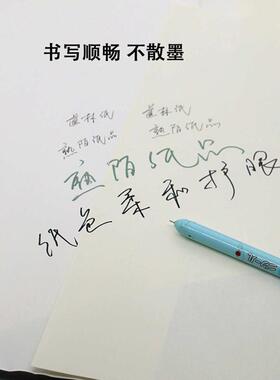 书写顺畅 不散墨
林纸 林纸
熟陌纸品 熟陌纸品
熟陌纸品
纸色柔和护眼